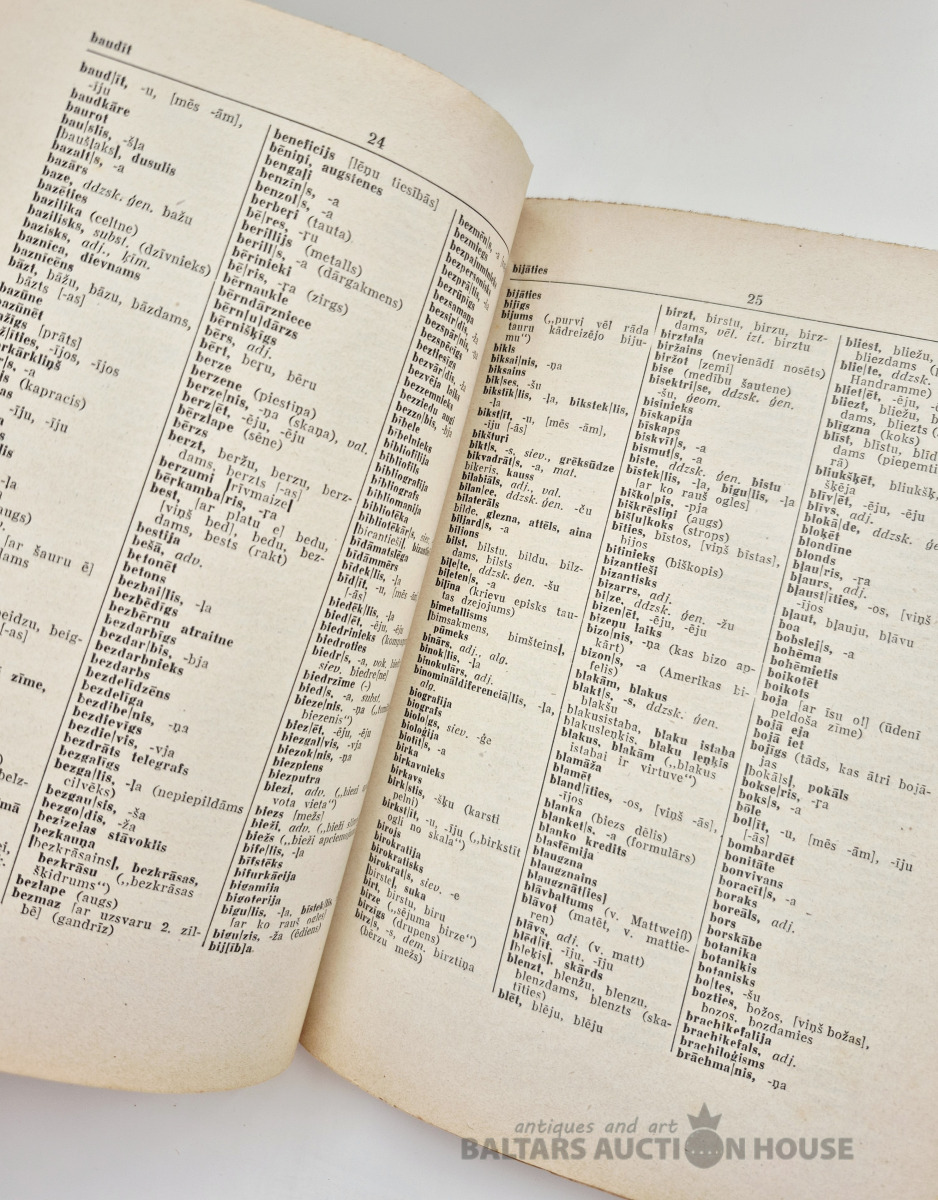 baudīt
24
baud|īt, -u, [mēs -ām],
-īju
baudkāre
baurot
bau|slis, -šļa
[baušļaks], dusulis
bazalt|s, -a
bazārs
baze, ddzsk. ģen. bažu
bazēties
bazilika (celtne)
bazilisks, subst. (dzīvnieks)
bazisks, adj., ķīm.
baznīca, dievnams
baznīcēns
bāzt, bāžu, bāzu, bāzdams,
bāzts [-as]
[prāts]
-ījos, -ījos
(kapracis)
-īju, -īju
-ļa
[ar šauru ē]
zīme,
bezlape (augs)
bezmaz [ar uzsvaru 2. zil-
bē] (gandrīz)
beneficijs [lēņu tiesībās]
bēniņi, augstenes
bengaļi
benzīn|s, -a
benzol|s, -a
berberi (tauta)
bē|res, -ru
berillijs (metalls)
berill|s, -a (dārgakmens)
bērinieki
bē|ris, -ŗa (zirgs)
bērnaukle
bērndārzniece
bērn[u]dārzs
bērnišķīgs
bērs, adj.
bērt, beru, bēru
berze
berzene (piestiņa)
berze|nis, -ņa (škaņa), val.
berz|ēt, -ēju, -ēju
bērzlape (sēne)
bērzs
berzt, beržu, berzu, berz-
dams, berzts [-as]
berzumi [rīvmaize]
bērkamba|ris, -ŗa
best, [ar platu e] bedu,
[viņš bed], bedu, bez-
dams, bests (rakt)
bestija
bešā, adv.
betonēt
betons
bezbai|lis, -ļa
bezbēdīgs
bezbērnu atraitne
bezdarbīgs
bezdar|bis, -bja
bezdarbnieks
bezdarbs
bezdelīdzēns
bezdelīga
bezdibe|nis, -ņa
bezdievīgs
bezdie|vis, -vja
bezdrāts telegrafs
bezgalīgs
bezga|lis, -ļa (nepiepildāms
cilvēks)
bezgau|sis, -ša
bezgo|dis, -ža
bezizejas stāvoklis
bezkauņa
[bezkrāsains], bezkrāsas,
bezkrāsu („bezkrāsas
šķidrums”)
bezmēn|s, -a
bezmiegs
bezpersonisks
bezrūpīgs
bezsamaņa
bezsir|dis, -ža
bezspēcīgs
beztiesīgs
bezvēja laiks
bezzemnieks
bezziedu augi
bezzo|bis, -bja
bībele
bībelnieks
bibliofilija
bibliofils
bibliografija
bibliografs
bibliomanija
bibliotēka
bīdāmatslēga
bīdāmmērs
bīdek|lis, -ļa
bīd|īt, -u,
[-ās]
biedēk|lis, -ļa
bied|ēt, -ēju, -ēju
biedrinieks
biedroties
biedr|s, -a, vok. biedri,
siev. biedre[ne]
biedrzīme (-)
bied|s, -a, subst.
bieze|nis, -ņa
biezenis”)
biez|ēt, -ēju, -ēju
biezgal|vis, -vja
biezok|nis, -ņa
biezpiens
biezputra
biezi, adv.
vota vieta”)
biezs [mežs]
bieži, adv.
biežs
bife|lis, -ļa
bifstēks
bifurkācija
bigamija
bigoterija
bigu|lis, -ļa, bistek|lis
[ar ko rauš ogles]
bigu|zis, -ža (ēdiens)
bij[īb]a
bijāties
25
bijāties
bijīgs
bijums („purvi vēl rāda
tauru kādreizējo biju-
mu”)
bikls
biksai|nis, -ņa
biksains
bik|ses, -šu
bikstīk|lis, -ļa, bikstek|lis,
-ļa
bikst|īt, -u, [mēs -ām],
-īju [-ās]
bikšturi
bikt|s, -s, siev., grēksūdze
bikvadrāt|s, -a, mat.
biķeris, kauss
bilabiāls, adj., val.
bilan|ce, ddzsk. ģen. -ču
bilaterāls
bilde, glezna, attēls, aina
biljard|s, -a
bilions
bilst, bilstu, bildu, bilz-
dams, bilsts
biļe|te, ddzsk. ģen. -šu
biļeten|s, -a
biļina (krievu episks tau-
tas dzejojums)
bimetallisms
[bimsakmens, bimšteins],
pūmeks
binārs, adj., alg.
binok|lis, -ļa
binokulārs, adj.
binomināldiferenciā|lis, -ļa,
alg.
biografija
biografs
biolo|gs, siev. -ģe
bioloģija
biotīt|s, -a
birka
birkavnieks
birkavs
birk|stis, -šķu (karsti
pelni)
birkst|īt, -u, -īju („birkstīt
ogli no skala”)
birojs
birokratija
birokratisks
birokrat|s, siev. -e
[birste], suka
birt, birstu, biru
birze („sējuma birze”)
birzīgs (drupens)
birz|s, -s, dem. birztiņa
(bērzu mežs)
birzt, birstu, birzu, birz-
dams, vēl. izt. birztu
birztala
biržains (nevienādi nosēts)
biržot [zemi]
bise (medību šautene)
bisektri|se, ddzsk. ģen.
-šu, ģeom.
bisinieks
bīskapija
bīskaps
biskvīt|s, -a
bismut|s, -a
biste, ddzsk. ģen. bistu
bistek|lis, -ļa, bigu|lis, -ļa
[ar ko rauš ogles]
biško|pis, -pja
biškrēsliņi (augs)
bišlu|koks (strops)
bīties, bīstos, [viņš bīstas],
bijos
bitinieks (biškopis)
bizantieši
bizantisks
bizarrs, adj.
bi|ze, ddzsk. ģen. -žu
bizen|ēt, -ēju, -ēju
bizeņu laiks
bizo|nis, -ņa (kas bizo ap-
kārt)
bizon|s, -a (Amerikas bi-
felis)
blakām, blakus
blakt|s, -s, ddzsk. ģen.
blakšu
blakusistaba, blaku istaba
blakusleņķis, blaku leņķis
blakus, blakām („blakus
istabai ir virtuve”)
blamāža
blamēt
bland|īties, -os, [viņš -ās],
-ījos
blanka (biezs dēlis)
blanket|s, -a (formulārs)
blanko kredits
blasfēmija
blaugzna
blaugznains
blaugznāt[ies]
blāvbaltums (v. Mattweiß)
blāvot (matēt, v. mattie-
ren)
blāvs, adj. (v. matt)
blēd|īt, -īju, -īju
[bleķis], skārds
blenzt, blenžu, blenzu,
blenzdams, blenzts (ska-
tīties)
blēt, blēju, blēju
bliest, bliežu,
bliezdams
blie|te, ddzsk.
Handramme)
bliet|ēt, -ēju,
bliezt, bliežu,
dams, bliezts
blīgzna (koks)
blīst, blīstu, blīd
dams (pieņemti
rā)
bliukšķēt, bliukšķ,
šķēja
blīv|ēt, -ēju, -ēju
blīvs, adj.
blokā|de, ddzsk. ģe
bloķēt
blondīne
blonds
bļau|ris, -ŗa
bļaurs, adj.
bļaust|īties, -os, [viņš
-ījos
bļaut, bļauju, bļāvu
boa
bobslej|s, -a
bohēma
bohēmietis
boikotēt
boikots
boja [ar īsu o!] (ūdenī
peldoša zīme)
bojā eja
bojā iet
bojīgs (tāds, kas ātri bojā-
jas
[bokāls], pokāls
bokse|ris, -ŗa
boks|s, -a
bōle
bol|īt, -u, [mēs -ām], -īju
[-ās]
bombardēt
bonitāte
bonvivans
boracīt|s, -a
boraks
boreāls, adj.
bors
borskābe
botanika
botaniķis
botanisks
bo|tes, -šu
bozties, božos, [viņš božas],
bozos, bozdamies
brachikefalija
brachikefals, adj.
brachiloģisms
brāchma|nis, -ņa
antiques and art
BALTARS AUCTION HOUSE